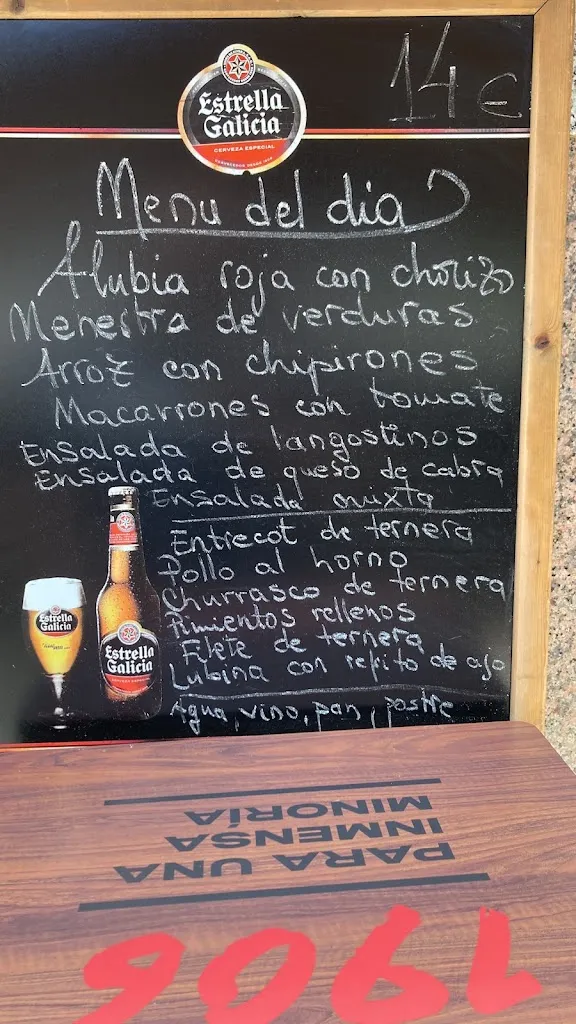 Estrella
Galicia
CERVEZA ESPECIAL
14 €
Menu del dia
Alubia roja con chorizo
Menestra de verduras
Arroz con chipirones
Macarrones con tomate
Ensalada de langostinos
Ensalada de queso de cabra
Ensalada mixta
Entrecot de ternera
Pollo al horno
Churrasco de ternera
Pimientos rellenos
Filete de ternera
Lubina con refito de ajo
Agua, vino, pan, postre
Estrella
Galicia
Estrella
Galicia
PARA UNA
INMENSA
MINORÍA
1906